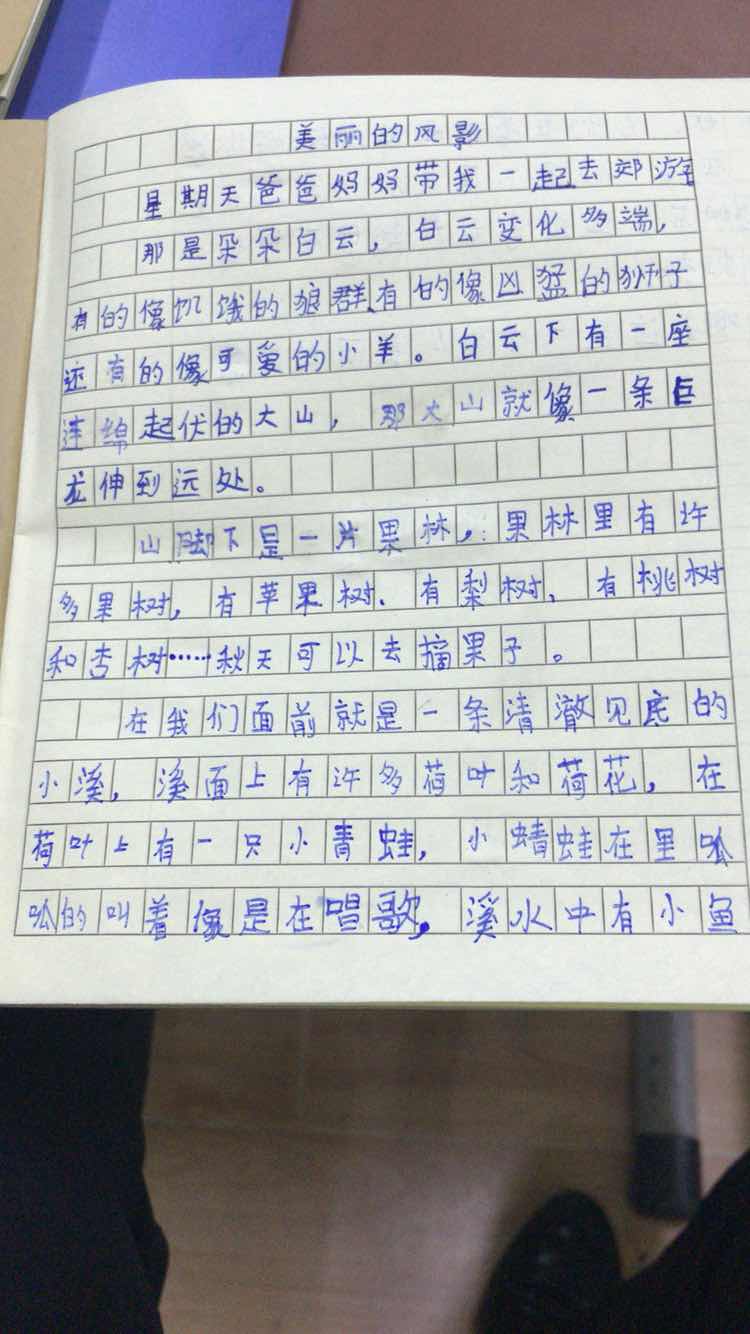 美丽的风影
星期天爸爸妈妈带我一起去郊游
那是朵朵白云，白云变化多端，
有的像饥饿的狼群、有的像凶猛的狮子
还有的像可爱的小羊。白云下有一座
连绵起伏的大山，那大山就像一条巨
龙伸到远处。
山脚下是一片果林，果林里有许
多果树，有苹果树、有梨树、有桃树
和杏树……秋天可以去摘果子。
在我们面前就是一条清澈见底的
小溪，溪面上有许多荷叶和荷花，在
荷叶上有一只小青蛙，小蜻蛙在里呱
呱的叫着像是在唱歌，溪水中有小鱼